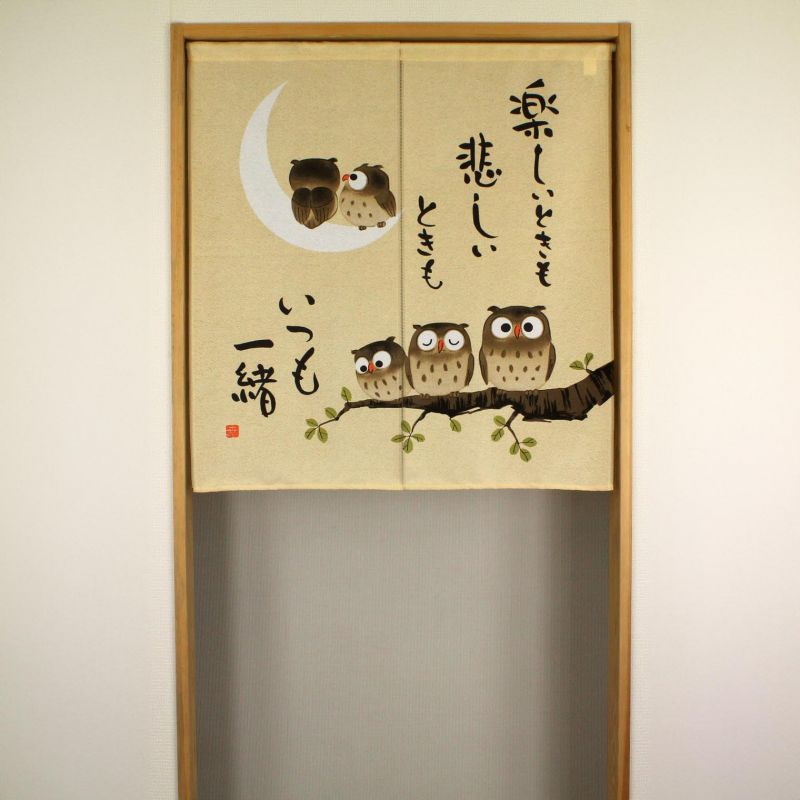 楽しいときも
悲しい
ときも
いつも
一緒